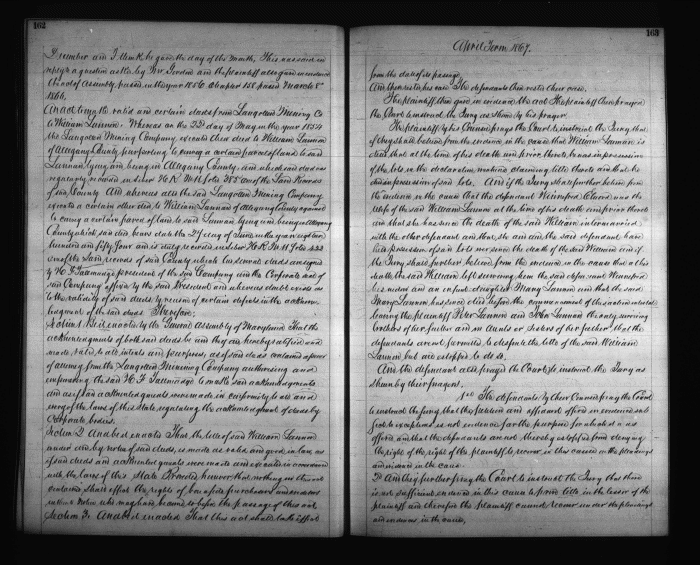 162
December and I think he gave the day of the month. This was said in
reply to a question asked by and the plaintiff also gave in evidence
the act of Assembly passed in the year 1856 chapter 158 passed March 8th
1856.
An act to make valid certain deeds from Langrotten Mining Co
to William Lannon. Whereas on the 22d day of May in the year 1854
the Langrotten Mining Company executed their deed to William Lannon
of Allegany County purporting to convey a certain parcel of land to said
Lannon lying and being in Allegany County and which said deed was
regularly recorded in Liber H.R. No. one of the Land Records
of said County. And whereas also the said Langrotten Mining Company
executed a certain other deed to William Lannon of Allegany County
to convey a certain parcel of land to said Lannon lying and being in Allegany
County which said deed bears date the 24 day of June in the year eighteen
hundred and fifty four and is duly recorded in Liber H.R. No.
one of the Land records of said County which several deeds are signed
by H. F. Tallmadge president of the said Company and the Corporate seal of
said Company affixed by the said President and whereas doubt exists as
to the validity of said deeds by reason of certain defects in the acknow-
ledgment of the said deeds. Therefore;
Section 1. Be it enacted by the General Assembly of Maryland That the
acknowledgments of both said deeds be and they are hereby ratified and
made valid to all intents and purposes, as if said deeds contained a power
of attorney from the Langrotten Mining Company authorizing and
empowering the said H. F. Tallmadge to make said acknowledgments
and as if said acknowledgments were made in conformity to all and
every of the laws of this state regulating the acknowledgment of deeds by
Corporate bodies.
Section 2. And be it enacted That the title of said William Lannon
under and by virtue of said deeds, is made as valid and good in law, as
if said deeds and acknowledgments were made and executed in accordance
with the laws of this State Provided however that nothing in this act
contained shall affect the rights of bona fide purchasers and creditors
without notice who may have become so before the passage of this act.
Section 3. And be it enacted That this act shall take effect
163
April Term 1867.
from the date of its passage.
And then rested his case. The defendants then rested their case.
The plaintiff then gave in evidence the act The plaintiff then prayed
the Court to instruct the Jury as shown by his prayer.
The plaintiff by his Counsel prays the Court to instruct the Jury that
if they shall believe from the evidence in the cause that William Lannon is
dead that at the time of his death and prior thereto he was in possession
of the lots in the declaration mentioned claiming title thereto and that he
died in possession of said lots. And if the Jury shall further believe from
the evidence in the cause that the defendant Winifred was the
wife of the said William Lannon at the time of his death and prior thereto
and that she has since the death of the said William intermarried
with the other defendant and that she and the said defendant have
held possession of said lots ever since the death of the said William and if
the Jury shall further believe from the evidence in the cause that at his
death the said William left surviving him the said defendant Winifred
his widow and an infant daughter Mary Lannon and that the said
Mary Lannon has since died before the commencement of this action
leaving the plaintiff Peter Lannon and John Lannon the only surviving
brothers of her father and no aunts or sisters of her father, that the
defendants are not permitted to dispute the title of the said William
Lannon but are estopped to do so.
And the defendant also prays the Court to instruct the Jury as
shown by their prayers.
1st The defendants by their Counsel pray the Court
to instruct the jury, that the petition and affidavit offered in evidence
is not evidence for the purpose for which it was
offered and that the defendants are not thereby estopped from denying
the right of the plaintiff to recover in this cause on the pleadings
and evidence in the cause.
2d And they further pray the Court to instruct the Jury that there
is not sufficient evidence in this cause to prove title in the lessor of the
plaintiff and therefore the plaintiff cannot recover under the pleadings
and evidence in the cause.